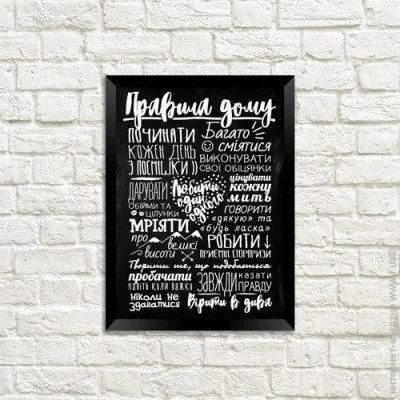 Правила дому
ПОЧИНАТИ
КОЖЕН ДЕНЬ
З ПОСМІШКИ
Багато
СМІЯТИСЯ
ВИКОНУВАТИ
СВОЇ ОБІЦЯНКИ
ДАРУВАТИ
ОБІЙМИ ТА
ЦІЛУНКИ
Любити
один
одного
цінувати
кожну
мить
ГОВОРИТИ
«ДЯКУЮ» ТА
«БУДЬ ЛАСКА»
МРІЯТИ
про
великі
висоти
РОБИТИ
ПРИЄМНІ СЮРПРИЗИ
Творити те, що подобається
пробачати
НАВІТЬ КОЛИ ВАЖКО
ЗАВЖДИ КАЗАТИ
ПРАВДУ
НІКОЛИ НЕ
ЗДАВАТИСЯ
Вірити в дива